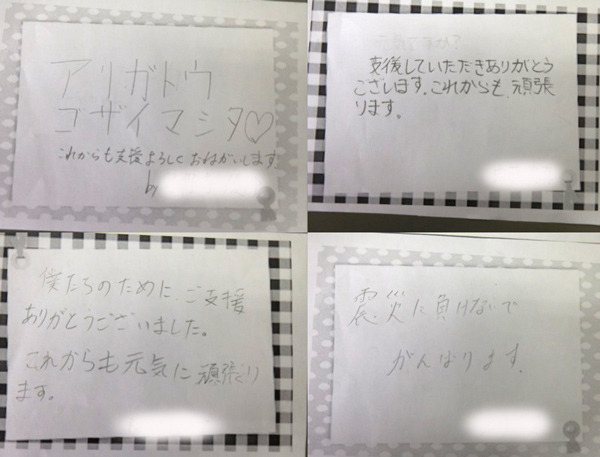 アリガトウ
ゴザイマシタ♡
これからも支援よろしくおねがいします
by
元気ですか?
支援していただきありがとう
ございます。これからも、頑張
ります。
僕たちのために、ご支援
ありがとうございました。
これからも元気に頑張り
ます。
震災に負けないで
がんばります。